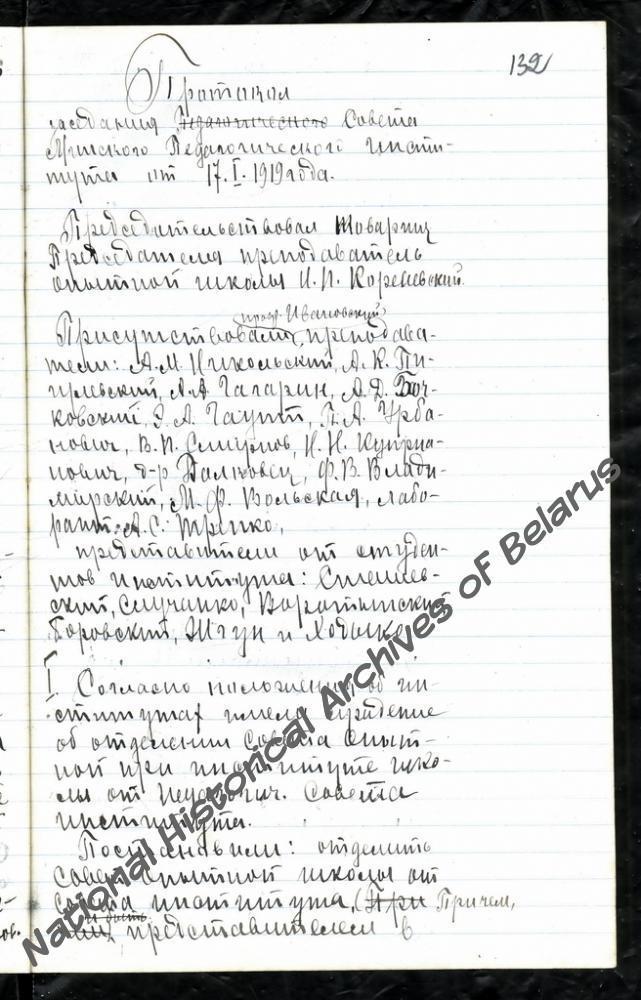 132
Протокол
заседания Педагогического Совета
Минского Педагогического Инсти-
тута от 17.I.1919 года.
Председательствовал товарищ
Председателя преподаватель
опытной школы И. И. Кореневский.
проф. Ивановский
Присутствовали, препοдава-
тели: А. М. Никольский, А. К. Пи-
гулевский, А. А. Гагарин, А. Д. Боч-
ковский, Э. А. Гаупт, Г. А. Урба-
нович, В. И. Смирнов, Н. Н. Куприа-
нович, д-р Палковец, Ф. В. Влади-
мирский, М. Ф. Вольская, лабо-
рант: А. С. Трепко,
представители от студен-
тов института:
ский, Случанко, Воротынский
Боровский, Жгун и Ходыко
I. Согласно положения об ин-
ститутах имела суждение
об отделении Совета опыт-
ной при институте шко-
лы от педагогич. Совета
института.
Постановили: отделить
Совет опытной школы от
Совета института, (При Причем,
представителем в
ов.
National Historical Archives of Belarus